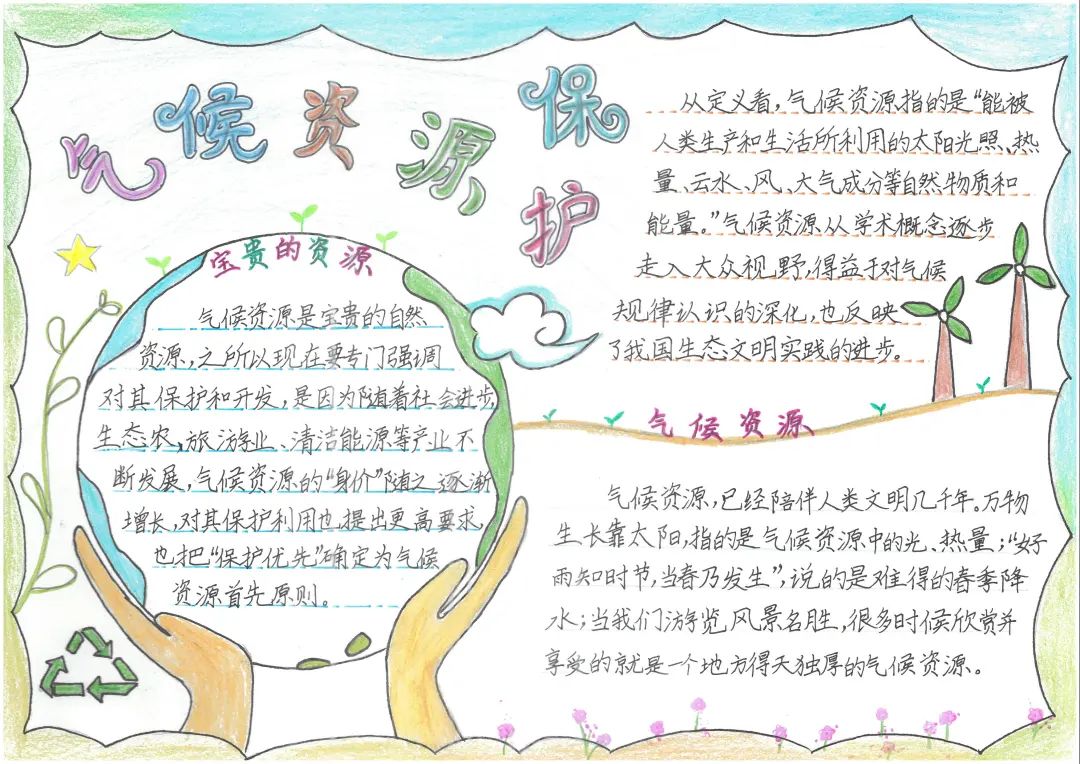 气候资源保护
宝贵的资源
气候资源是宝贵的自然
资源,之所以现在要专门强调
对其保护和开发,是因为随着社会进步,
生态农,旅游业、清洁能源等产业不
断发展,气候资源的“身价”随之逐渐
增长,对其保护利用也提出更高要求,
也把“保护优先”确定为气候
资源首先原则。
从定义看,气候资源指的是“能被
人类生产和生活所利用的太阳光照、热
量、云水、风、大气成分等自然物质和
能量。”气候资源从学术概念逐步
走入大众视野,得益于对气候
规律认识的深化,也反映
了我国生态文明实践的进步。
气候资源
气候资源,已经陪伴人类文明几千年。万物
生长靠太阳,指的是气候资源中的光、热量;“好
雨知时节,当春乃发生”,说的是难得的春季降
水;当我们游览风景名胜,很多时候欣赏并
享受的就是一个地方得天独厚的气候资源。